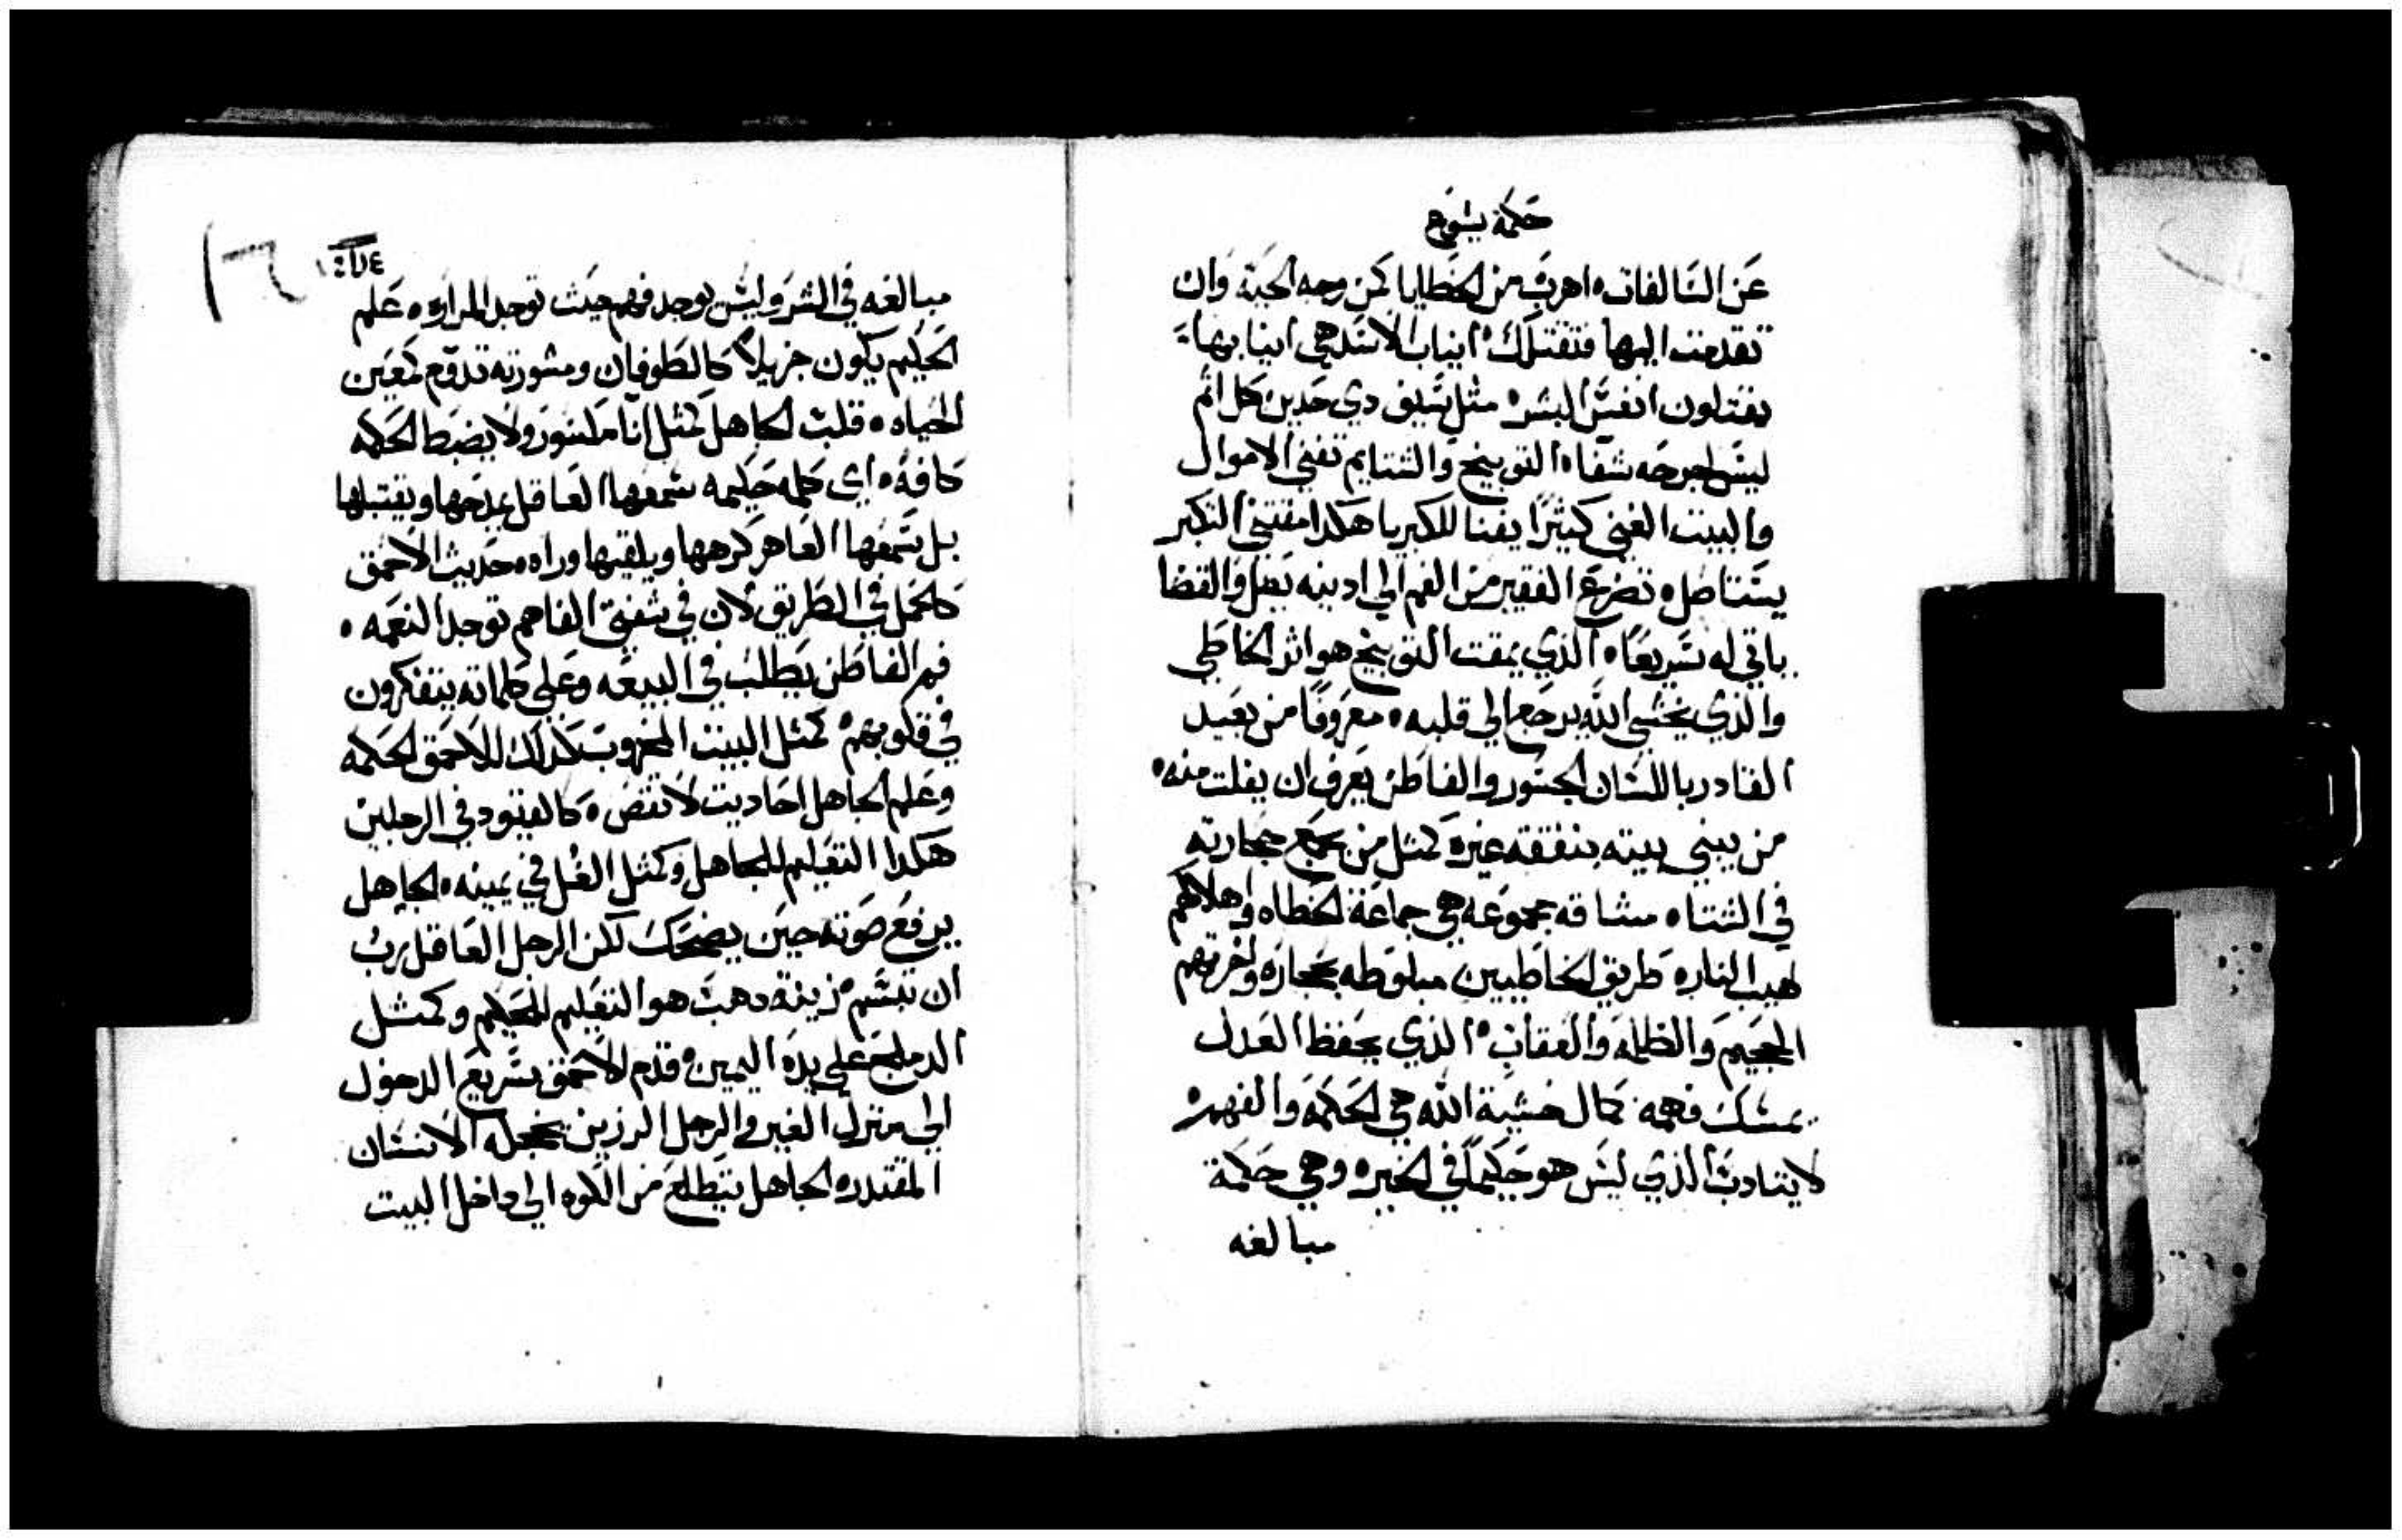 حكمة يشوع
عن السالفات • اهرب من الخطايا كمن وجه الحية وان
تقدمت اليها فتقتلك • انياب الاسد هي انيابها
يقتلون انفس البشر • مثل سيف دي حدين كل اثم
ليس لجرحه شفاء • التوبيخ والشتايم تفني الاموال
والبيت الغني كثيرًا يفنا للكبريا هكدا مقتني التكبر
يستاصل • تضرع الفقير من الفم الي ادنيه يصل والقضا
ياتي له سريعًا • الذي يمقت التوبيخ هو اثر الخاطي
والذي يخشي الله يرجع الي قلبه • معروفًا من بعيد
القادر باللسان الجسور والفاطن يعرف ان يفلت منه •
من يبني بيته بنفقه غيره كمثل من يجمع حجارته
في الشتاء • مشاقه مجموعه هي جماعة الخطاه واهلاكهم
لهيب النار • طريق الخاطيين مبلوطه بحجاره واخرتهم
الجحيم والظلمه والعقاب • الذي يحفظ العدل
يمسك فهمه • كمال خشية الله هي الحكمة والفهم •
لا يتادب الذي ليس هو حكيمًا في الخير • وهي حكمة
مبالغه
مبالغه في الشر وليس يوجد فهم حيث توجد المراره • علم
الحكيم يكون جزيلاً كالطوفان ومشورته تدوم كمعين
الحياه • قلب الجاهل كمثل انا مكسور ولا يضبط الحكمه
كافة • اي كلمه حكيمه سمعها العاقل يمدحها ويقتبلها
بل سمعها العاهر كرهها ويلقيها وراه • حديث الاحمق
كالحمل في الطريق لان في شفتي الفاهم توجد النعمه •
فم الفاطن يطلب في البيعه وعلي كلماته يتفكرون
في قلوبهم • كمثل البيت المخروب كدلك للاحمق الحكمه
وعلم الجاهل احاديت لا تقص • كالقيود في الرجلين
هكدا التعليم للجاهل وكمثل الغل في يمينه • الجاهل
يرفع صوته حين يضحك لكن الرجل العاقل يرب
ان تبسم • زينة دهب هو التعليم للحكيم وكمثل
الدملج علي يده اليمين • قدم الاحمق سريع الدخول
الي منزل الغير والرجل الرزين يخجله الانسان
المقتدر • الجاهل يتطلع من الكوه الي داخل البيت